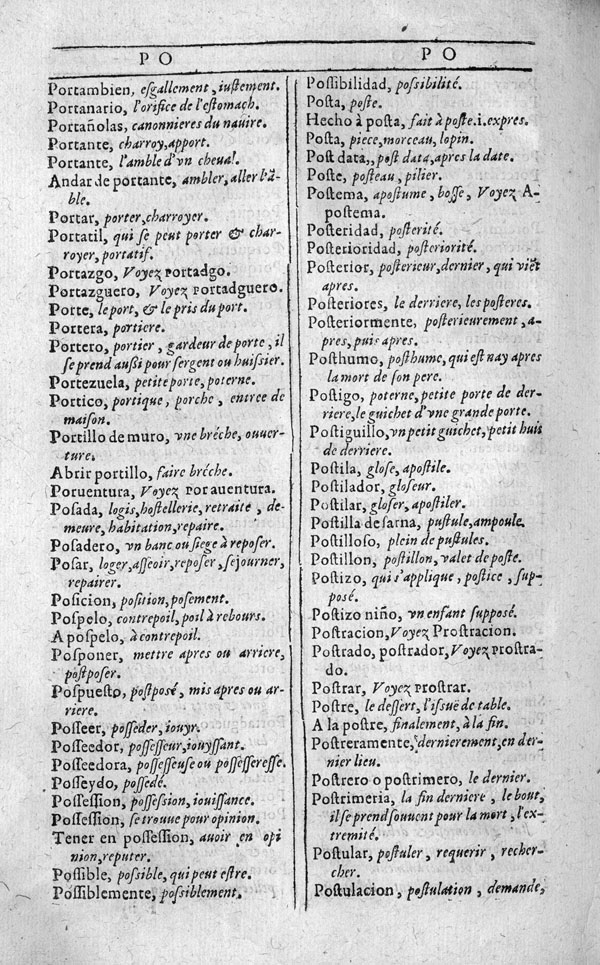 PO
Portambien, esgallement, iustement.
Portanario, l'orifice de l'estomach.
Portañolas, canonnieres du nauire.
Portante, charroy, apport.
Portante, l'amble d'vn cheual.
Andar de portante, ambler, aller l'ã-
ble.
Portar, porter, charroyer.
Portatil, qui se peut porter & char-
royer, portatif.
Portazgo, Voyez Portadgo.
Portazguero, Voyez Portadguero.
Porte, le port, & le pris du port.
Portera, portiere.
Portero, portier, gardeur de porte, il
se prend aussi pour sergent ou huissier.
Portezuela, petite porte, poterne.
Portico, portique, porche, entree de
maison.
Portillo de muro, vne bréche, ouuer-
ture.
Abrir portillo, faire bréche.
Poruentura, Voyez Porauentura.
Posada, logis, hostellerie, retraite, de-
meure, habitation, repaire.
Posadero, vn banc ou siege à reposer.
Posar, loger, asseoir, reposer, sejourner,
repairer.
Posicion, position, posement.
Pospelo, contrepoil, poil à rebours.
A pospelo, à contrepoil.
Posponer, mettre apres ou arriere,
postposer.
Pospuesto, postposé, mis apres ou ar-
riere.
Posseer, posseder, iouyr.
Posseedor, possesseur, iouyssant.
Posseedora, possesseuse ou possesseresse.
Posseydo, possedé.
Possession, possession, iouissance.
Possession, se trouue pour opinion.
Tener en possession, auoir en opi
nion, reputer.
Possible, possible, qui peut estre.
Possiblemente, possiblement.
PO
Possibilidad, possibilité.
Posta, poste.
Hecho à posta, fait à poste.i.expres.
Posta, piece, morceau, lopin.
Post data,, post data, apres la date.
Poste, posteau, pilier.
Postema, apostume, bosse, Voyez A-
postema.
Posteridad, posterité.
Posterioridad, posteriorité.
Posterior, posterieur, dernier, qui viẽt
apres.
Posteriores, le derriere, les posteres.
Posteriormente, posterieurement, a-
pres, puis apres.
Posthumo, posthume, qui est nay apres
la mort de son pere.
Postigo, poterne, petite porte de der-
riere, le guichet d'vne grande porte.
Postiguillo, vn petit guichet, petit huis
de derriere.
Postila, glose, apostile.
Postilador, gloseur.
Postilar, gloser, apostiler.
Postilla de sarna, pustule, ampoule.
Postilloso, plein de pustules.
Postillon, postillon, valet de poste.
Postizo, qui s'applique, postice, sup-
posé.
Postizo niño, vn enfant supposé.
Postracion, Voyez Prostracion.
Postrado, postrador, Voyez Prostra-
do.
Postrar, Voyez Prostrar.
Postre, le dessert, l'issuë de table.
A la postre, finalement, à la fin.
Postreramente, dernierement, en der-
nier lieu.
Postrero o postrimero, le dernier.
Postrimeria, la fin derniere, le bout,
il se prend souuent pour la mort, l'ex-
tremité.
Postular, postuler, requerir, recher-
cher.
Postulacion, postulation, demande,